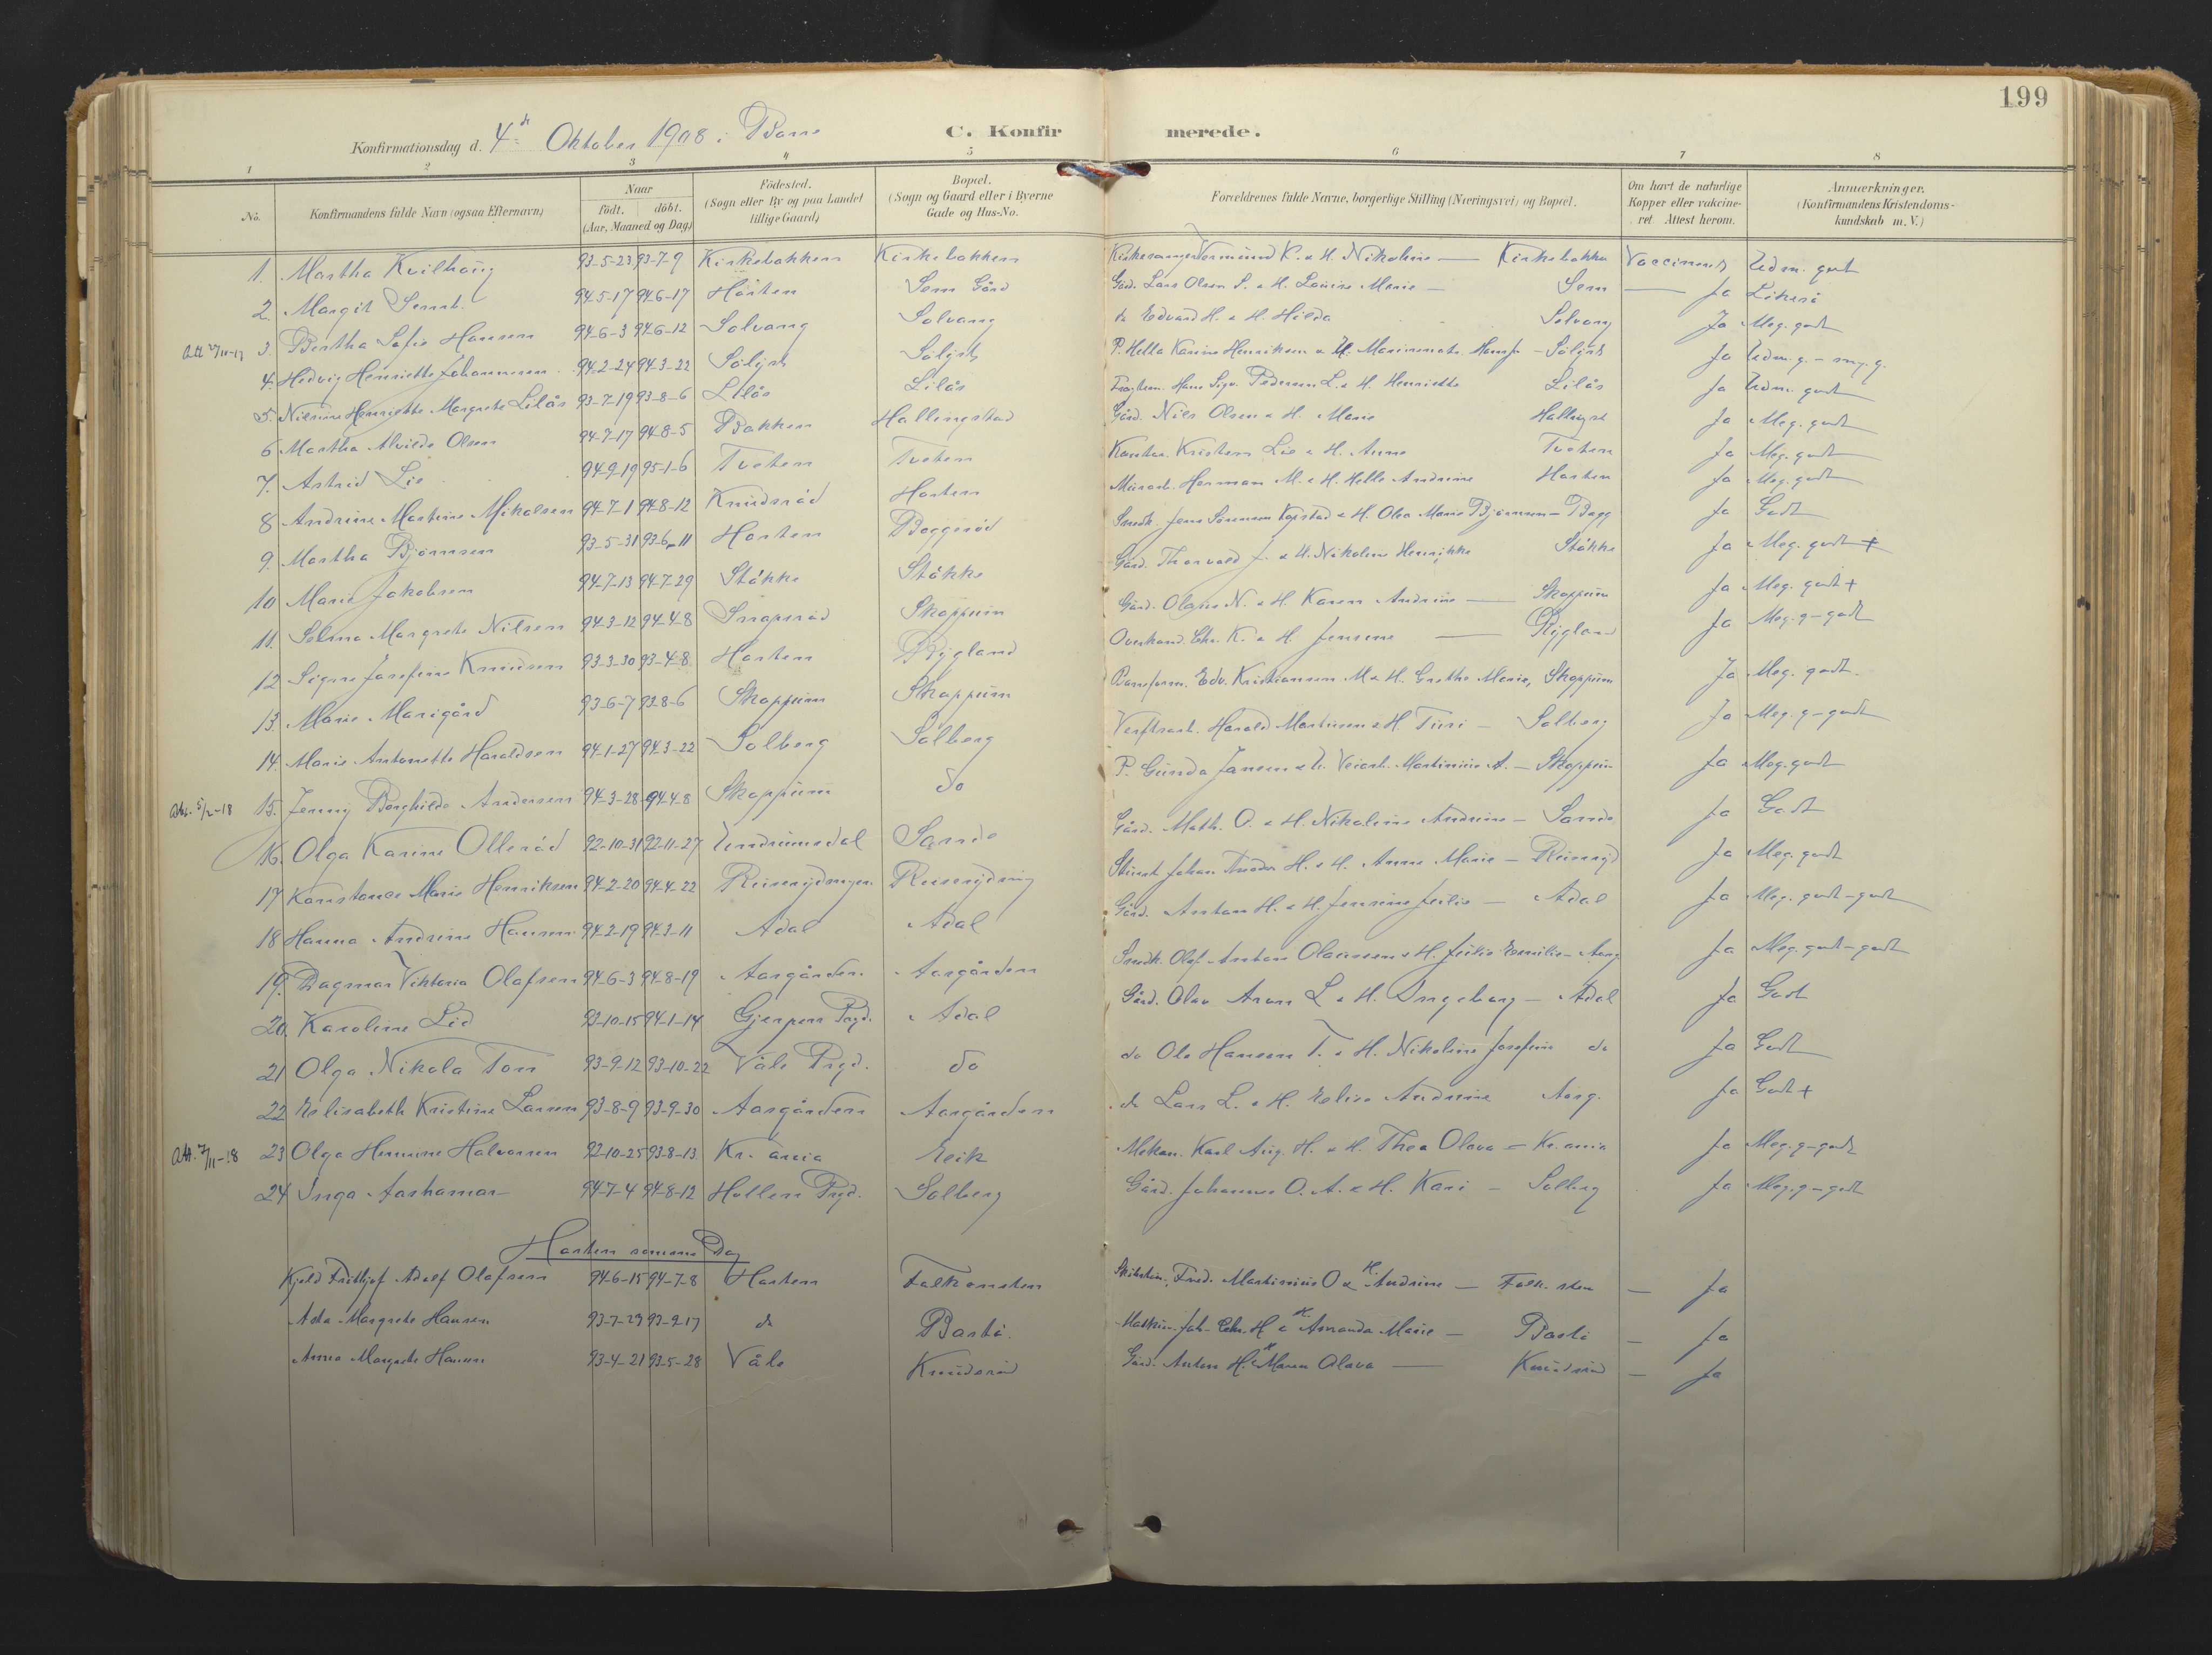 199
Konfirmationsdag d. 4de Oktober 1908 i Borre C. Konfirmerede.
1 2 3 4 5 6 7 8
No. Konfirmandens fulde Navn (ogsaa Efternavn) Naar födt. döbt. (Aar, Maaned og Dag) Födested. (Sogn eller By og paa Landet tillige Gaard) Bopæl. (Sogn og Gaard eller i Byerne Gade og Hus-No. Forældrenes fulde Navne, borgerlige Stilling (Næringsvei) og Bopæl. Om havt de naturlige Kopper eller vakcineret. Attest herom. Anmærkninger. (Konfirmandens Kristendomskundskab m. V.)
1. Martha Kvilhaug 93-5-23 93-7-9 Kirkebakken Kirkebakken Kirkesanger K. & H. Nikoline — Kirkebakken Vaccineret Udm. godt
2. Margit 94-5-17 94-6-17 Horten Sem Gård Gård. Lars Olsen S. & H. Louise Marie — Sem — Ja
3. Bertha Sofie Hansen 94-6-3 94-6-12 Solvang Solvang do Edvard H. & H. Hilda Solvang Ja Meg. godt
4. Hedvig Henriette Johannesen 94-2-24 94-3-22 P. Helta Karine Henriksen & Ja Udm. g. - m. g.
5. Nilsine Henriette Margrete Lilås 93-7-19 93-8-6 Lilås Lilås Hans Sigv. Pedersen L. & H. Henriette Lilås Ja Udm. godt
6 Martha Alvilde Olsen 94-7-17 94-8-5 Bakken Hallingstad Gård. Nils Olsen & H. Marie Ja Meg. godt
7. Astrid Lie 94-9-19 95-1-6 Tveten Tveten Kristen Lie & H. Anne Tveten Ja Meg. godt
8 Andrine Martine Mikalsen 94-7-1 94-8-12 Knudsröd Horten Herman M. & H. Helle Andrine Horten Ja Meg. godt
9. Martha Bjørnsen 93-5-31 93-6-11 Horten Boggeröd Snedk. Jens Sörensen & H. Olea Marie Bjørnsen — Bogg Ja Godt
10 Marie Jakobsen 94-7-13 94-7-29 Ståkke Ståkke Gård. Thorvald J. & H. Nikoline Henrikke Ståkke Ja Meg. godt +
11. Selma Margrete Nilsen 94-3-12 94-4-8 Snapsröd Skoppum Gård. Olaus N. & H. Karen Andrine — Skoppum Ja Meg. godt +
12 Signe Josefine Knudsen 93-3-30 93-4-8 Horten Rygland K. & H. Jensine — Rygland Ja Meg. g - godt
13. Marie Marigård 93-6-7 93-8-6 Skoppum Skoppum Baneform. Edv. Kristiansen M & H. Grethe Marie, Skoppum Ja Meg. godt.
14. Marie Antonette Haraldsen 94-1-27 94-3-22 Solberg Solberg Verftsarb. Harald Martinsen & H. Turi — Solberg Ja Meg. g - godt
15. Jenny Borghilde Andersen 94-3-28 94-4-8 Skoppum do P. Gunda Jansen & U. Veiarb. Martinius A. — Skoppum Ja Meg. godt
16. Olga Karine Olleröd 92-10-31 92-11-27 Undrumsdal Sande Gård. Math. O. & H. Nikoline Andrine — Sande Ja Godt
17 Konstance Marie Henriksen 94-2-20 94-4-22 Johan Teodor H. & H. Anne Marie — Ja Meg. godt
18 Hanna Andrine Hansen 94-2-19 94-3-11 Adal Adal Gård. Anton H. & H. Jensine Julie — Adal Ja Meg. godt - godt
19. Dagmar Viktoria Olafsen 94-6-3 94-8-19 Aasgården Aasgården Snedk. Olaf Anton Olaussen & H. Julie Emilie — Aasg Ja Meg. godt - godt
20. Karoline Lid 93-10-15 94-1-14 Gjerpen Prgd. Adal Gård. Olav Aron L & H. Ingeborg — Adal Ja Godt
21 Olga Nikola Ton 93-9-12 93-10-22 Våle Prgd. do do Ole Hansen T. & H. Nikoline Josefine do Ja Godt
22 Elisabeth Kristine Larsen 93-8-9 93-9-30 Aasgården Aasgården do Lars L. & H. Elise Andrine Aasg. Ja Godt +
Att. 7/11-18 23 Olga Hermine Halvorsen 92-10-25 93-8-13 Kr. ania Eeik Mekan. Karl Aug. H. & H. Thea Olava — Kr. ania Ja Meg. g - godt
24 Inga Aashamar 94-7-4 94-8-12 Hollen Prgd. Solberg Gård. Johannes O. A. & H. Kari — Solberg Ja Meg. g - godt
Horten samme Dag
Kjeld Fridtjof Adolf Olafsen 94-6-15 94-7-8 Horten Falkensten Fred. Martinius O & H. Andrine — Falk. sten — Ja
Asta Margrete Hansen 93-7-29 93-9-17 do Bastö. Maskin. Joh. Chr. H & H Amanda Marie — Bastö — Ja
Anna Margrete Hansen 93-4-21 93-5-28 Våle Knudsröd Gård. Anton H. & H Maren Olava — Knudsröd — Ja